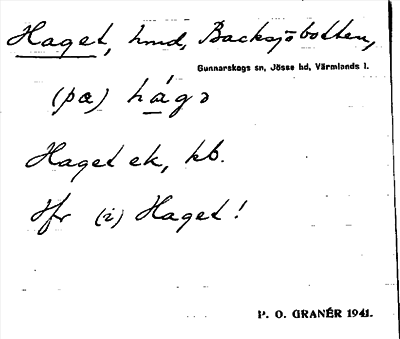 Haget, hmd, Backsjöbotten,
Gunnarskogs sn, Jösse hd, Värmlands l.
(pa) hágə
Haget ek, kb.
Jfr (i) Haget!
P. O. GRANÉR 1941.